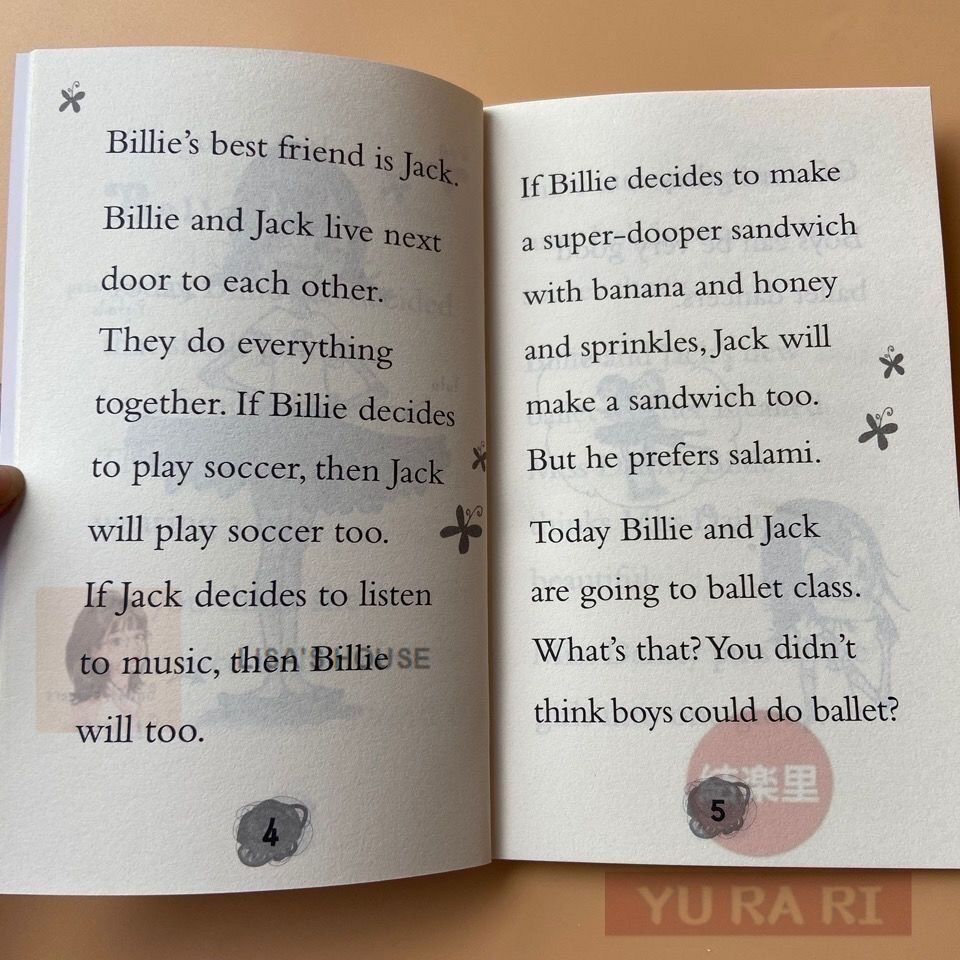 Billie's best friend is Jack.
Billie and Jack live next
door to each other.
They do everything
together. If Billie decides
to play soccer, then Jack
will play soccer too.
If Jack decides to listen
to music, then Billie
will too.
LISA'S HOUSE
4
If Billie decides to make
a super-dooper sandwich
with banana and honey
and sprinkles, Jack will
make a sandwich too.
But he prefers salami.
Today Billie and Jack
are going to ballet class.
What's that? You didn't
think boys could do ballet?
5
结楽里
YU RA RI